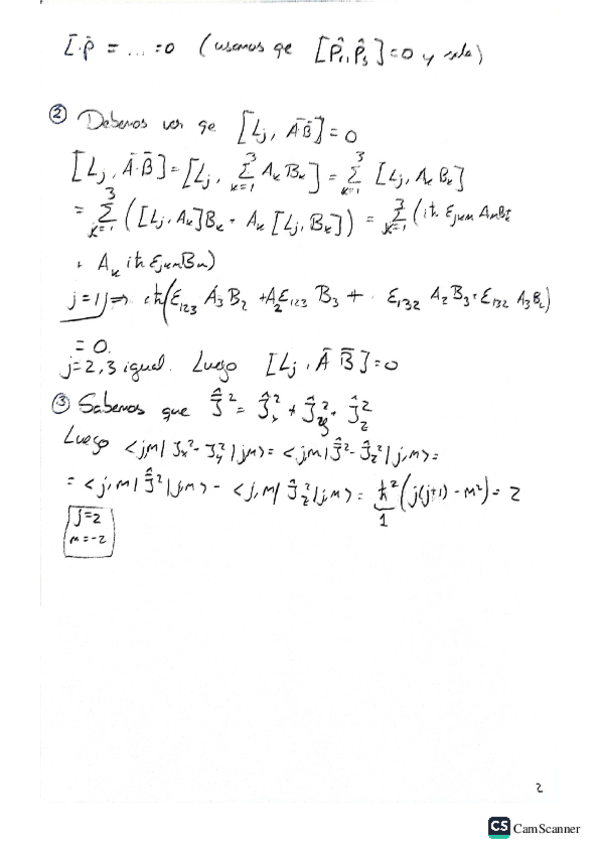 L̄·p̄ = ... = 0 (usamos qe [P̂ᵢ, P̂ⱼ] = 0 y sale)
② Debemos ver qe [Lj, ĀB̄] = 0
[Lj, Ā·B̄] = [Lj, Σ_{k=1}^{3} Ak Bk] = Σ_{k=1}^{3} [Lj, Ak Bk]
= Σ_{k=1}^{3} ([Lj, Ak]Bk + Ak [Lj, Bk]) = Σ_{k=1}^{3} (iħ εjkm Am Bk
+ Ak iħ εjkm Bm)
j=1 ⇒ iħ(ε123 A3 B2 + A2 ε123 B3 + ε132 A2 B3 + ε132 A3 B2)
= 0.
j=2,3 igual. Luego [Lj, Ā B̄] = 0
③ Sabemos que Ĵ² = Ĵx² + Ĵy² + Ĵz²
Luego <jm| Jx² + Jy² |jm> = <j,m| Ĵ² - Ĵz² |j,m> =
= <j,m| Ĵ² |j,m> - <j,m| Ĵz² |j,m> = ħ² (j(j+1) - m²) = 2
1
j=2
m=-2
2
CS CamScanner